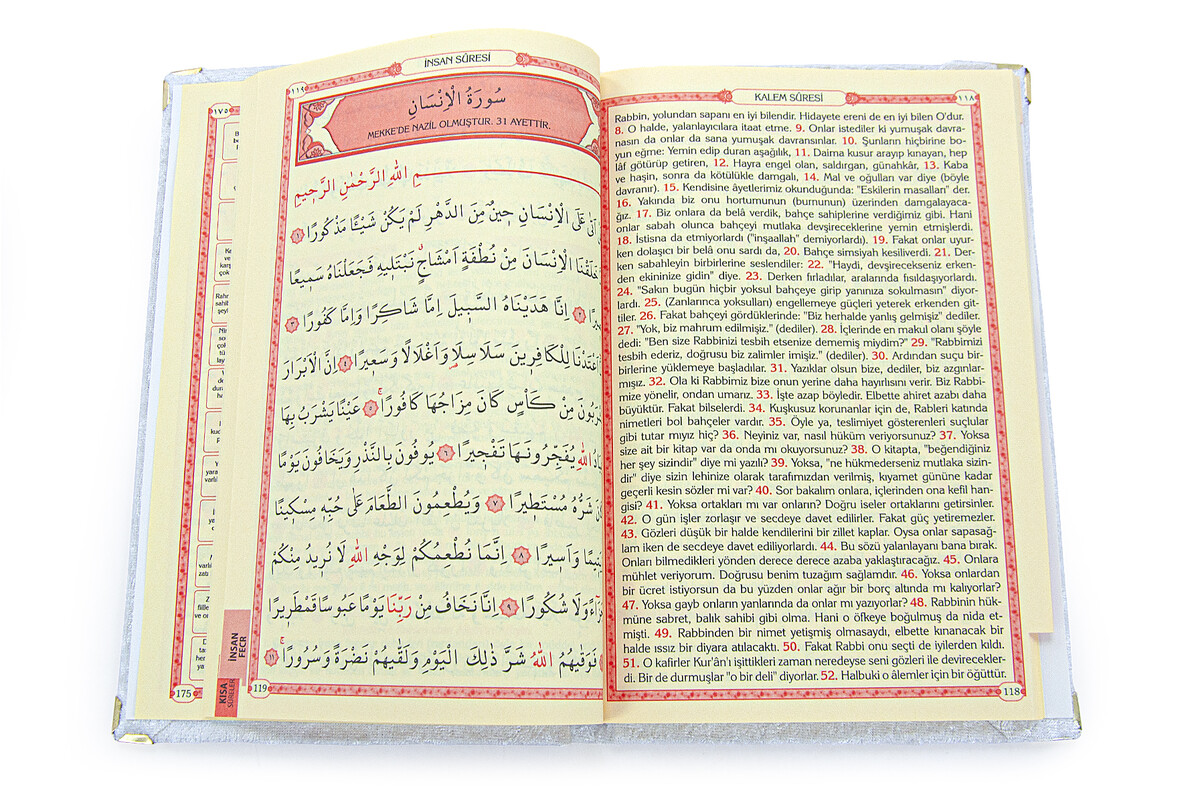 KALEM SÛRESİ
١١٨
Rabbin, yolundan sapanı en iyi bilendir. Hidayete ereni de en iyi bilen O'dur.
8. O halde, yalanlayıcılara itaat etme. 9. Onlar istediler ki yumuşak davra-
nasın da onlar da sana yumuşak davransınlar. 10. Şunların hiçbirine bo-
yun eğme: Yemin edip duran aşağılık, 11. Daima kusur arayıp kınayan, hep
lâf götürüp getiren, 12. Hayra engel olan, saldırgan, günahkâr, 13. Kaba
ve haşin, sonra da kötülükle damgalı, 14. Mal ve oğulları var diye (böyle
davranır). 15. Kendisine âyetlerimiz okunduğunda: "Eskilerin masalları" der.
16. Yakında biz onu hortumunun (burnunun) üzerinden damgalayaca-
ğız. 17. Biz onlara da belâ verdik, bahçe sahiplerine verdiğimiz gibi. Hani
onlar sabah olunca bahçeyi mutlaka devşireceklerine yemin etmişlerdi.
18. İstisna da etmiyorlardı ("inşaallah" demiyorlardı). 19. Fakat onlar uyur-
ken dolaşıcı bir belâ onu sardı da, 20. Bahçe simsiyah kesiliverdi. 21. Der-
ken sabahleyin birbirlerine seslendiler: 22. "Haydi, devşirecekseniz erken-
den ekininize gidin" diye. 23. Derken fırladılar, aralarında fısıldaşıyorlardı.
24. "Sakın bugün hiçbir yoksul bahçeye girip yanınıza sokulmasın" diyor-
lardı. 25. (Zanlarınca yoksulları) engellemeye güçleri yeterek erkenden git-
tiler. 26. Fakat bahçeyi gördüklerinde: "Biz herhalde yanlış gelmişiz" dediler.
27. "Yok, biz mahrum edilmişiz." (dediler). 28. İçlerinde en makul olanı şöyle
dedi: "Ben size Rabbinizi tesbih etsenize dememiş miydim?" 29. "Rabbimizi
tesbih ederiz, doğrusu biz zalimler imişiz." (dediler). 30. Ardından suçu bir-
birlerine yüklemeye başladılar. 31. Yazıklar olsun bize, dediler, biz azgınlar-
mışız. 32. Ola ki Rabbimiz bize onun yerine daha hayırlısını verir. Biz Rabbi-
mize yönelir, ondan umarız. 33. İşte azap böyledir. Elbette ahiret azabı daha
büyüktür. Fakat bilselerdi. 34. Kuşkusuz korunanlar için de, Rableri katında
nimetleri bol bahçeler vardır. 35. Öyle ya, teslimiyet gösterenleri suçlular
gibi tutar mıyız hiç? 36. Neyiniz var, nasıl hüküm veriyorsunuz? 37. Yoksa
size ait bir kitap var da onda mı okuyorsunuz? 38. O kitapta, "beğendiğiniz
her şey sizindir" diye mi yazılı? 39. Yoksa, "ne hükmederseniz mutlaka sizin-
dir" diye sizin lehinize olarak tarafımızdan verilmiş, kıyamet gününe kadar
geçerli kesin sözler mi var? 40. Sor bakalım onlara, içlerinden ona kefil han-
gisi? 41. Yoksa ortakları mı var onların? Doğru iseler ortaklarını getirsinler.
42. O gün işler zorlaşır ve secdeye davet edilirler. Fakat güç yetiremezler.
43. Gözleri düşük bir halde kendilerini bir zillet kaplar. Oysa onlar sapasağ-
lam iken de secdeye davet ediliyorlardı. 44. Bu sözü yalanlayanı bana bırak.
Onları bilmedikleri yönden derece derece azaba yaklaştıracağız. 45. Onlara
mühlet veriyorum. Doğrusu benim tuzağım sağlamdır. 46. Yoksa onlardan
bir ücret istiyorsun da bu yüzden onlar ağır bir borç altında mı kalıyorlar?
47. Yoksa gayb onların yanlarında da onlar mı yazıyorlar? 48. Rabbinin hük-
müne sabret, balık sahibi gibi olma. Hani o öfkeye boğulmuş da nida et-
mişti. 49. Rabbinden bir nimet yetişmiş olmasaydı, elbette kınanacak bir
halde ıssız bir diyara atılacaktı. 50. Fakat Rabbi onu seçti de iyilerden kıldı.
51. O kafirler Kur'ân'ı işittikleri zaman neredeyse seni gözleri ile devirecekler-
di. Bir de durmuşlar "o bir deli" diyorlar. 52. Halbuki o âlemler için bir öğüttür.
118
١١٩
İNSAN SÛRESİ
سُورَةُ الْاِنْسَانِ
MEKKE'DE NAZİL OLMUŞTUR. 31 AYETTİR.
ـمِ اللهِ الرَّحْمٰنِ الرَّحِيمِ
اَتٰى عَلَى الْاِنْسَانِ حِينٌ مِنَ الدَّهْرِ لَمْ يَكُنْ شَيْئًا مَذْكُورًا ١
خَلَقْنَا الْاِنْسَانَ مِنْ نُطْفَةٍ اَمْشَاجٍ نَبْتَلِيهِ فَجَعَلْنَاهُ سَمِيعًا
٢ اِنَّا هَدَيْنَاهُ السَّبِيلَ اِمَّا شَاكِرًا وَاِمَّا كَفُورًا ٣
اَعْتَدْنَا لِلْكَافِرِينَ سَلَاسِلَا وَاَغْلَالًا وَسَعِيرًا ٤ اِنَّ الْاَبْرَارَ
مِنْ كَأْسٍ كَانَ مِزَاجُهَا كَافُورًا ٥ عَيْنًا يَشْرَبُ بِهَا
اللهِ يُفَجِّرُونَهَا تَفْجِيرًا ٦ يُوفُونَ بِالنَّذْرِ وَيَخَافُونَ يَوْمًا
شَرُّهُ مُسْتَطِيرًا ٧ وَيُطْعِمُونَ الطَّعَامَ عَلٰى حُبِّهِ مِسْكِينًا
وَاَسِيرًا ٨ اِنَّمَا نُطْعِمُكُمْ لِوَجْهِ اللهِ لَا نُرِيدُ مِنْكُمْ
وَلَا شُكُورًا ٩ اِنَّا نَخَافُ مِنْ رَبِّنَا يَوْمًا عَبُوسًا قَمْطَرِيرًا
فَوَقٰيهُمُ اللهُ شَرَّ ذٰلِكَ الْيَوْمِ وَلَقّٰيهُمْ نَضْرَةً وَسُرُورًا ١١
119
İNSAN
FECR
KISA
SÛRELER
١٧٥
175